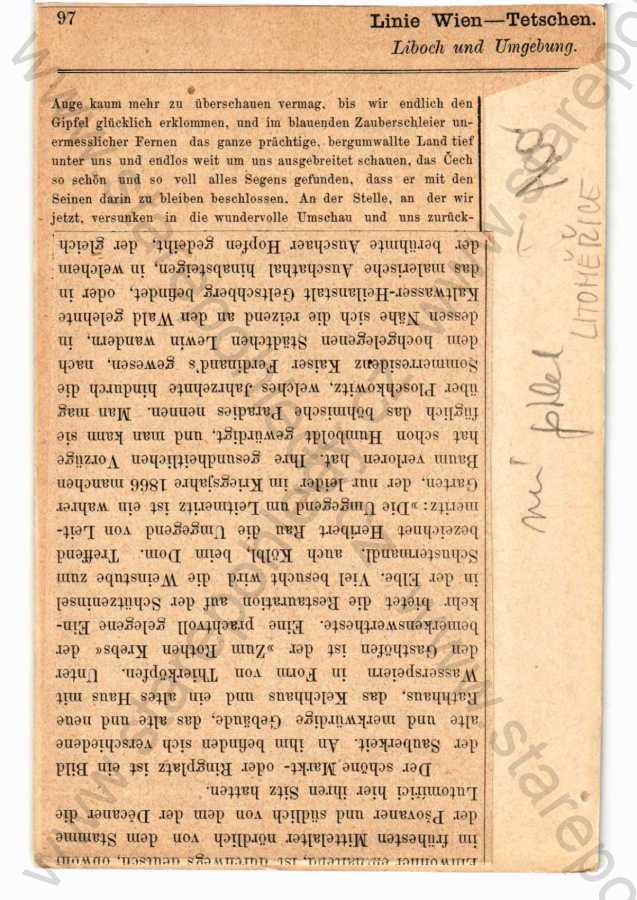 97
Linie Wien—Tetschen.
Liboch und Umgebung.
Auge kaum mehr zu überschauen vermag, bis wir endlich den
Gipfel glücklich erklommen, und im blauenden Zauberschleier un-
ermesslicher Fernen das ganze prächtige, bergumwallte Land tief
unter uns und endlos weit um uns ausgebreitet schauen, das Čech
so schön und so voll alles Segens gefunden, dass er mit den
Seinen darin zu bleiben beschlossen. An der Stelle, an der wir
jetzt, versunken in die wundervolle Umschau und uns zurück-
Einwohner enthaltend, ist durchwegs deutsch, obwohl
im frühesten Mittelalter nördlich von dem Stamme
der Pšovaner und südlich von dem der Dĕcaner die
Lutomirici hier ihren Sitz hatten.
Der schöne Markt- oder Ringplatz ist ein Bild
der Sauberkeit. An ihm befinden sich verschiedene
alte und merkwürdige Gebäude, das alte und neue
Rathhaus, das Kelchhaus und ein altes Haus mit
Wasserspeiern in Form von Thierköpfen. Unter
den Gasthöfen ist der »Zum Rothen Krebs« der
bemerkenswertheste. Eine prachtvoll gelegene Ein-
kehr bietet die Restauration auf der Schützeninsel
in der Elbe. Viel besucht wird die Weinstube zum
Schustermandl, auch Kölbl beim Dom. Treffend
bezeichnet Heribert Rau die Umgegend von Leit-
meritz: »Die Umgegend um Leitmeritz ist ein wahrer
Garten, der nur leider im Kriegsjahre 1866 manchen
Baum verloren hat. Ihre gesundheitlichen Vorzüge
hat schon Humboldt gewürdigt, und man kann sie
füglich das böhmische Paradies nennen. Man mag
über Ploschkowitz, welches Jahrzehnte hindurch die
Sommerresidenz Kaiser Ferdinand's gewesen, nach
dem hochgelegenen Städtchen Lewin wandern, in
dessen Nähe sich die reizend an den Wald gelehnte
Kaltwasser-Heilanstalt Geltschberg befindet, oder in
das malerische Auschathal hinabsteigen, in welchem
der berühmte Auschaer Hopfen gedeiht, der gleich
LITOMĚŘICE
www.starepohledy.cz